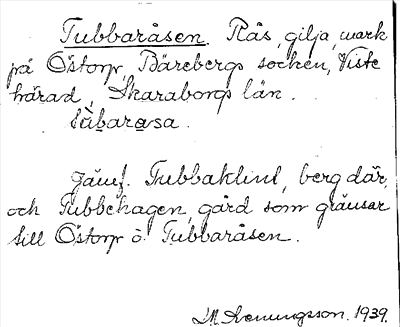 Tubbaråsen. Rås, gilja, mark
på Östorp, Bärebergs socken, Viste
härad, Skaraborgs län.
tùbarasa.
Jämf. Tubbaklint, berg där,
och Tubbehagen, gård som gränsar
till Östorp o. Tubbaråsen.
1939.